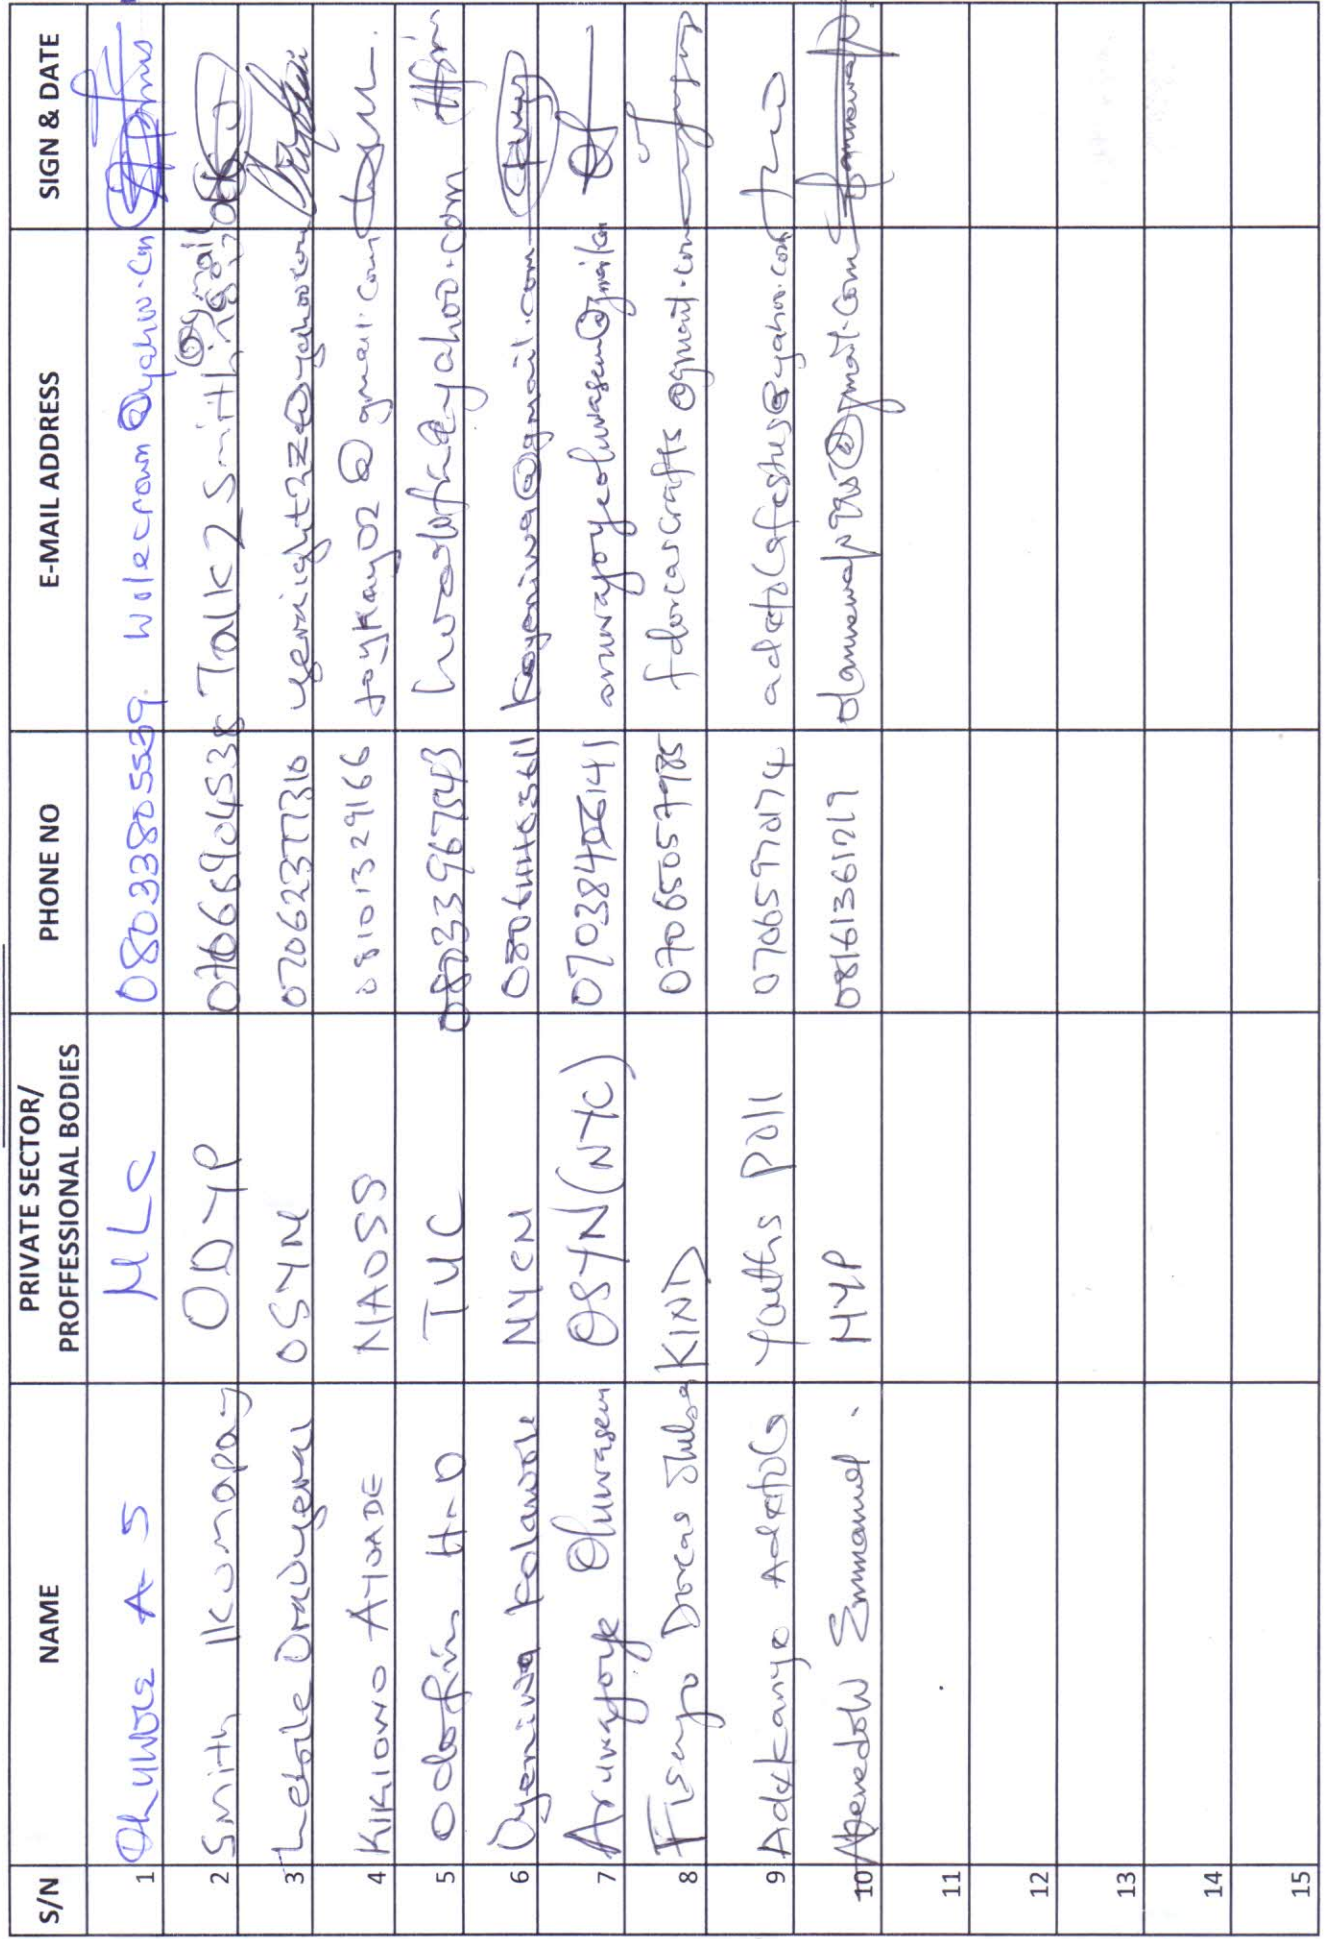 S/N NAME PRIVATE SECTOR/ PROFFESSIONAL BODIES PHONE NO E-MAIL ADDRESS SIGN & DATE
1 Oluwole A-S MLC 08033805539 Wolecrown@yahoo.com
2 Smith Ikumapay ODYP 07066904538 Talk2Smith @gmail
3 OSYM 07062377310
4 KIKIOWO AYOADE NAOSS 08101329166 joykay02@gmail.com
5 Odofin H-O TUC 08033967543 @yahoo.com
6 Oyeniwa Kolawole NYCN Koyeniwa@gmail.com
7 Aruwajoye Oluwaseun OSYN(NYC) 07038406141 aruwajoyeoluwaseun@gmail.com
8 Fisayo Dorcas KIND 07065057985 fdorcascrafts@gmail.com
9 Adekanye Adetola Youths Poll 07065970174 adetolafestus@yahoo.com
10 Emmanuel. 08161361219 @gmail.com
11
12
13
14
15